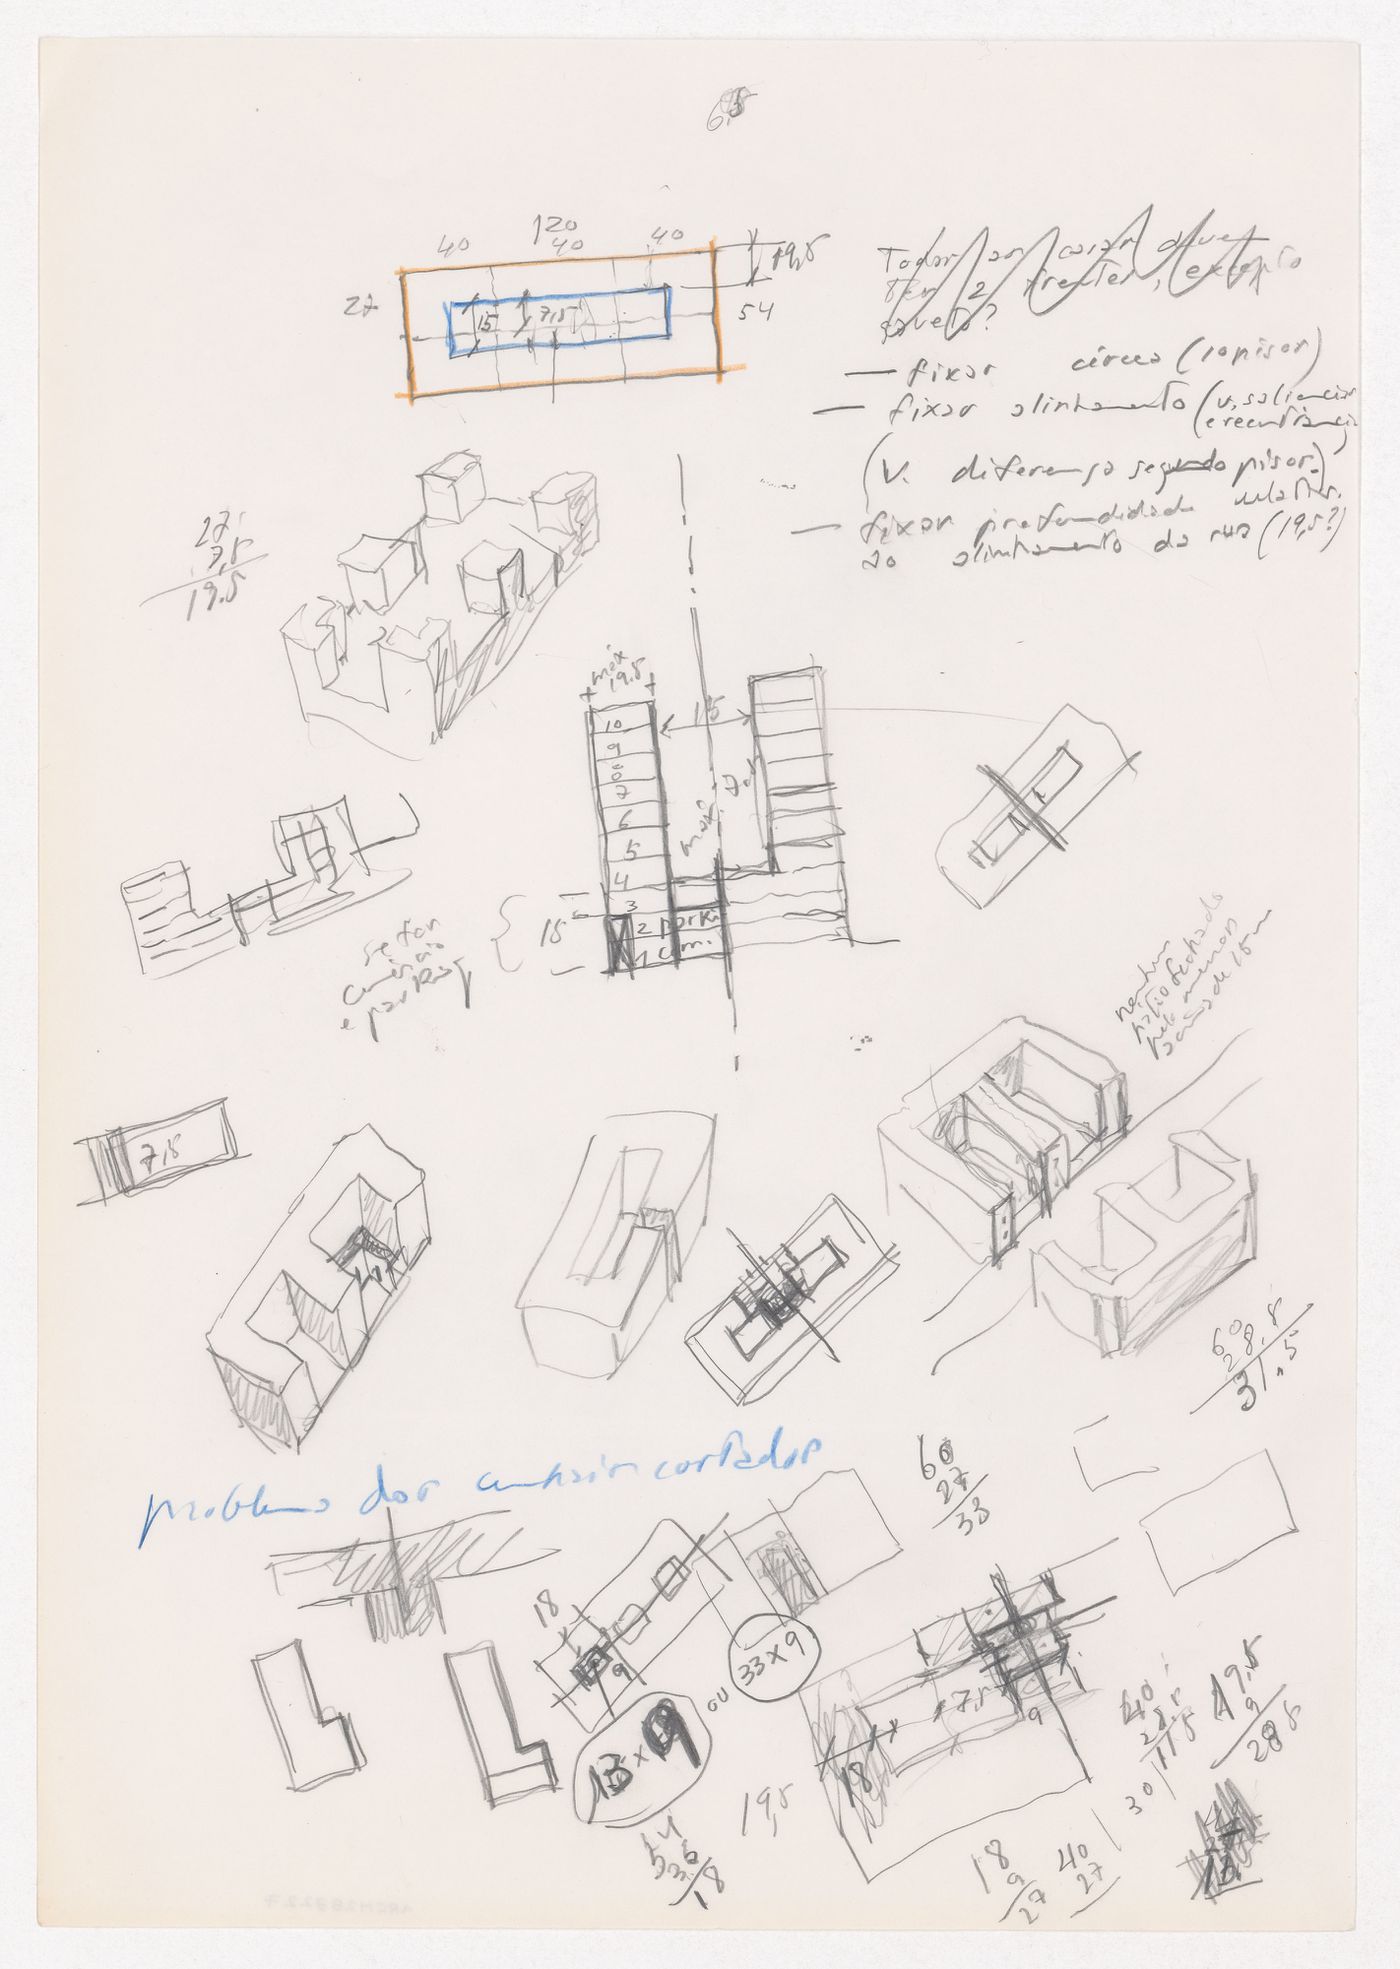 6,5
120
40 40 40
27
19,5
54
15 7,5
Todas as casas devem
ter 2 frentes, excepto
gaveto?
— fixar cércea (10 pisos)
— fixar alinhamento (v. saliencias
e reentrâncias
(v. diferença segundo pisos)
— fixar profundidade relativ.
ao alinhamento da rua (19,5?)
27
7,5
19.5
máx
19.5
15
10
9
8
7
6
5
4
3
2 parki
1 com.
15
máx.
sector
comércio
e parking
nenhum
pátio fechado
pelo menos
vãos de 15 m
7,5
60
28.5
31.5
problema dos cunhais cortados
60
27
33
18
9
33 x 9
ou
13 x 9
7,5
9
18
19,5
54
36
18
18
9
27
40
27
40
28.5
11.5
30
19,5
9
28 5